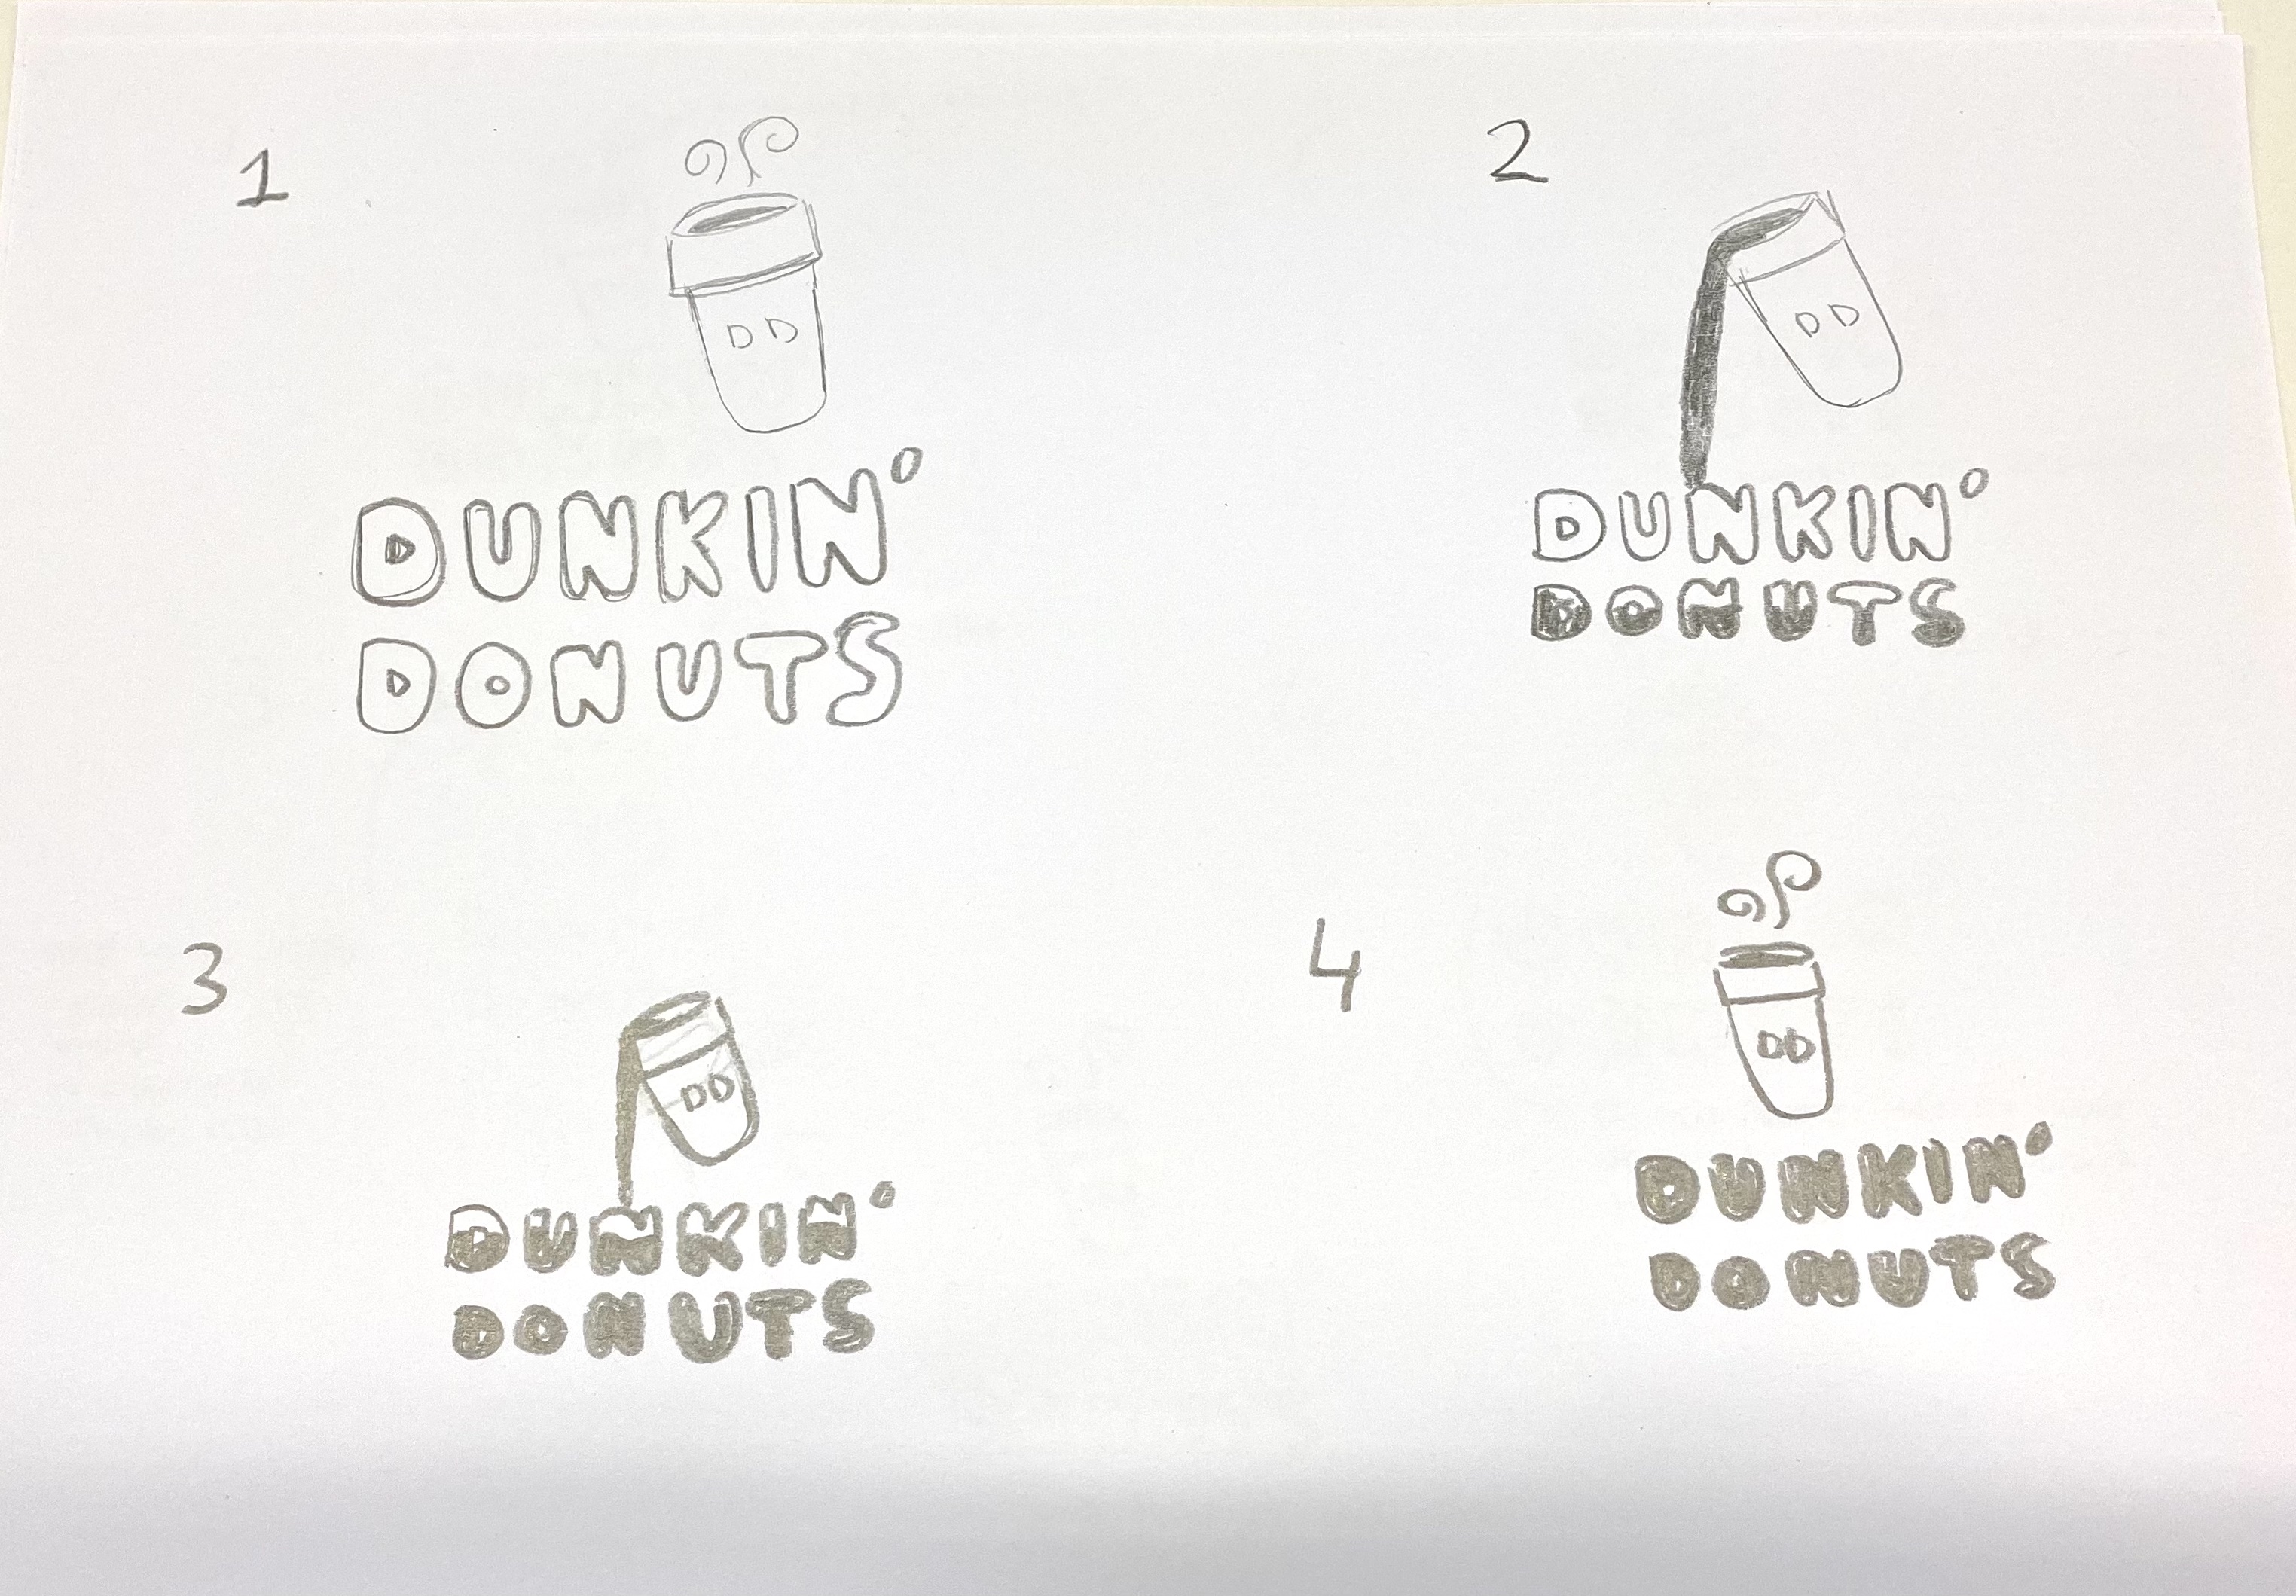 1
DD
DUNKIN'
DONUTS
2
DD
DUNKIN'
DONUTS
3
DD
DUNKIN'
DONUTS
4
DD
DUNKIN'
DONUTS